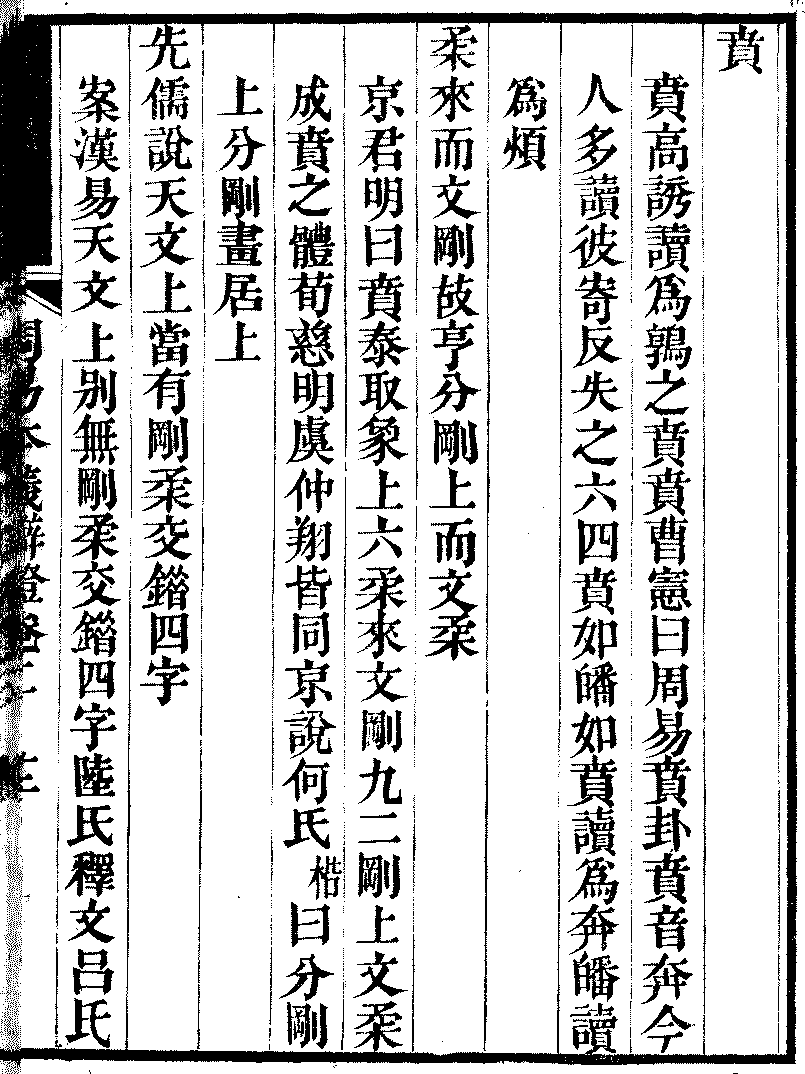 賁
賁高誘讀爲鶉之賁賁曹憲曰周易賁卦賁音奔今
人多讀彼寄反失之六四賁如皤如賁讀爲奔皤讀
爲煩
柔來而文剛故亨分剛上而文柔
京君明曰賁泰取象上六柔來文剛九二剛上文柔
成賁之體荀慈明虞仲翔皆同京說何氏楷曰分剛
上分剛畫居上
先儒說天文上當有剛柔交錯四字
案漢易天文上別無剛柔交錯四字陸氏釋文呂氏
周易本義辯證卷二